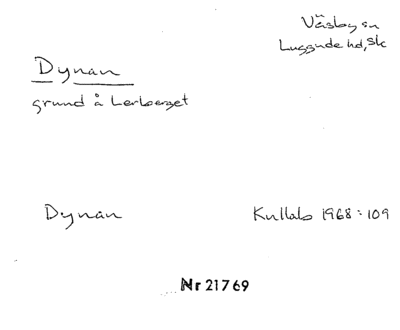 Väsby sn
Luggude hd, Sk
Dynan
grund å Lerberget
Dynan
Kullab 1968:109
Nr 21769